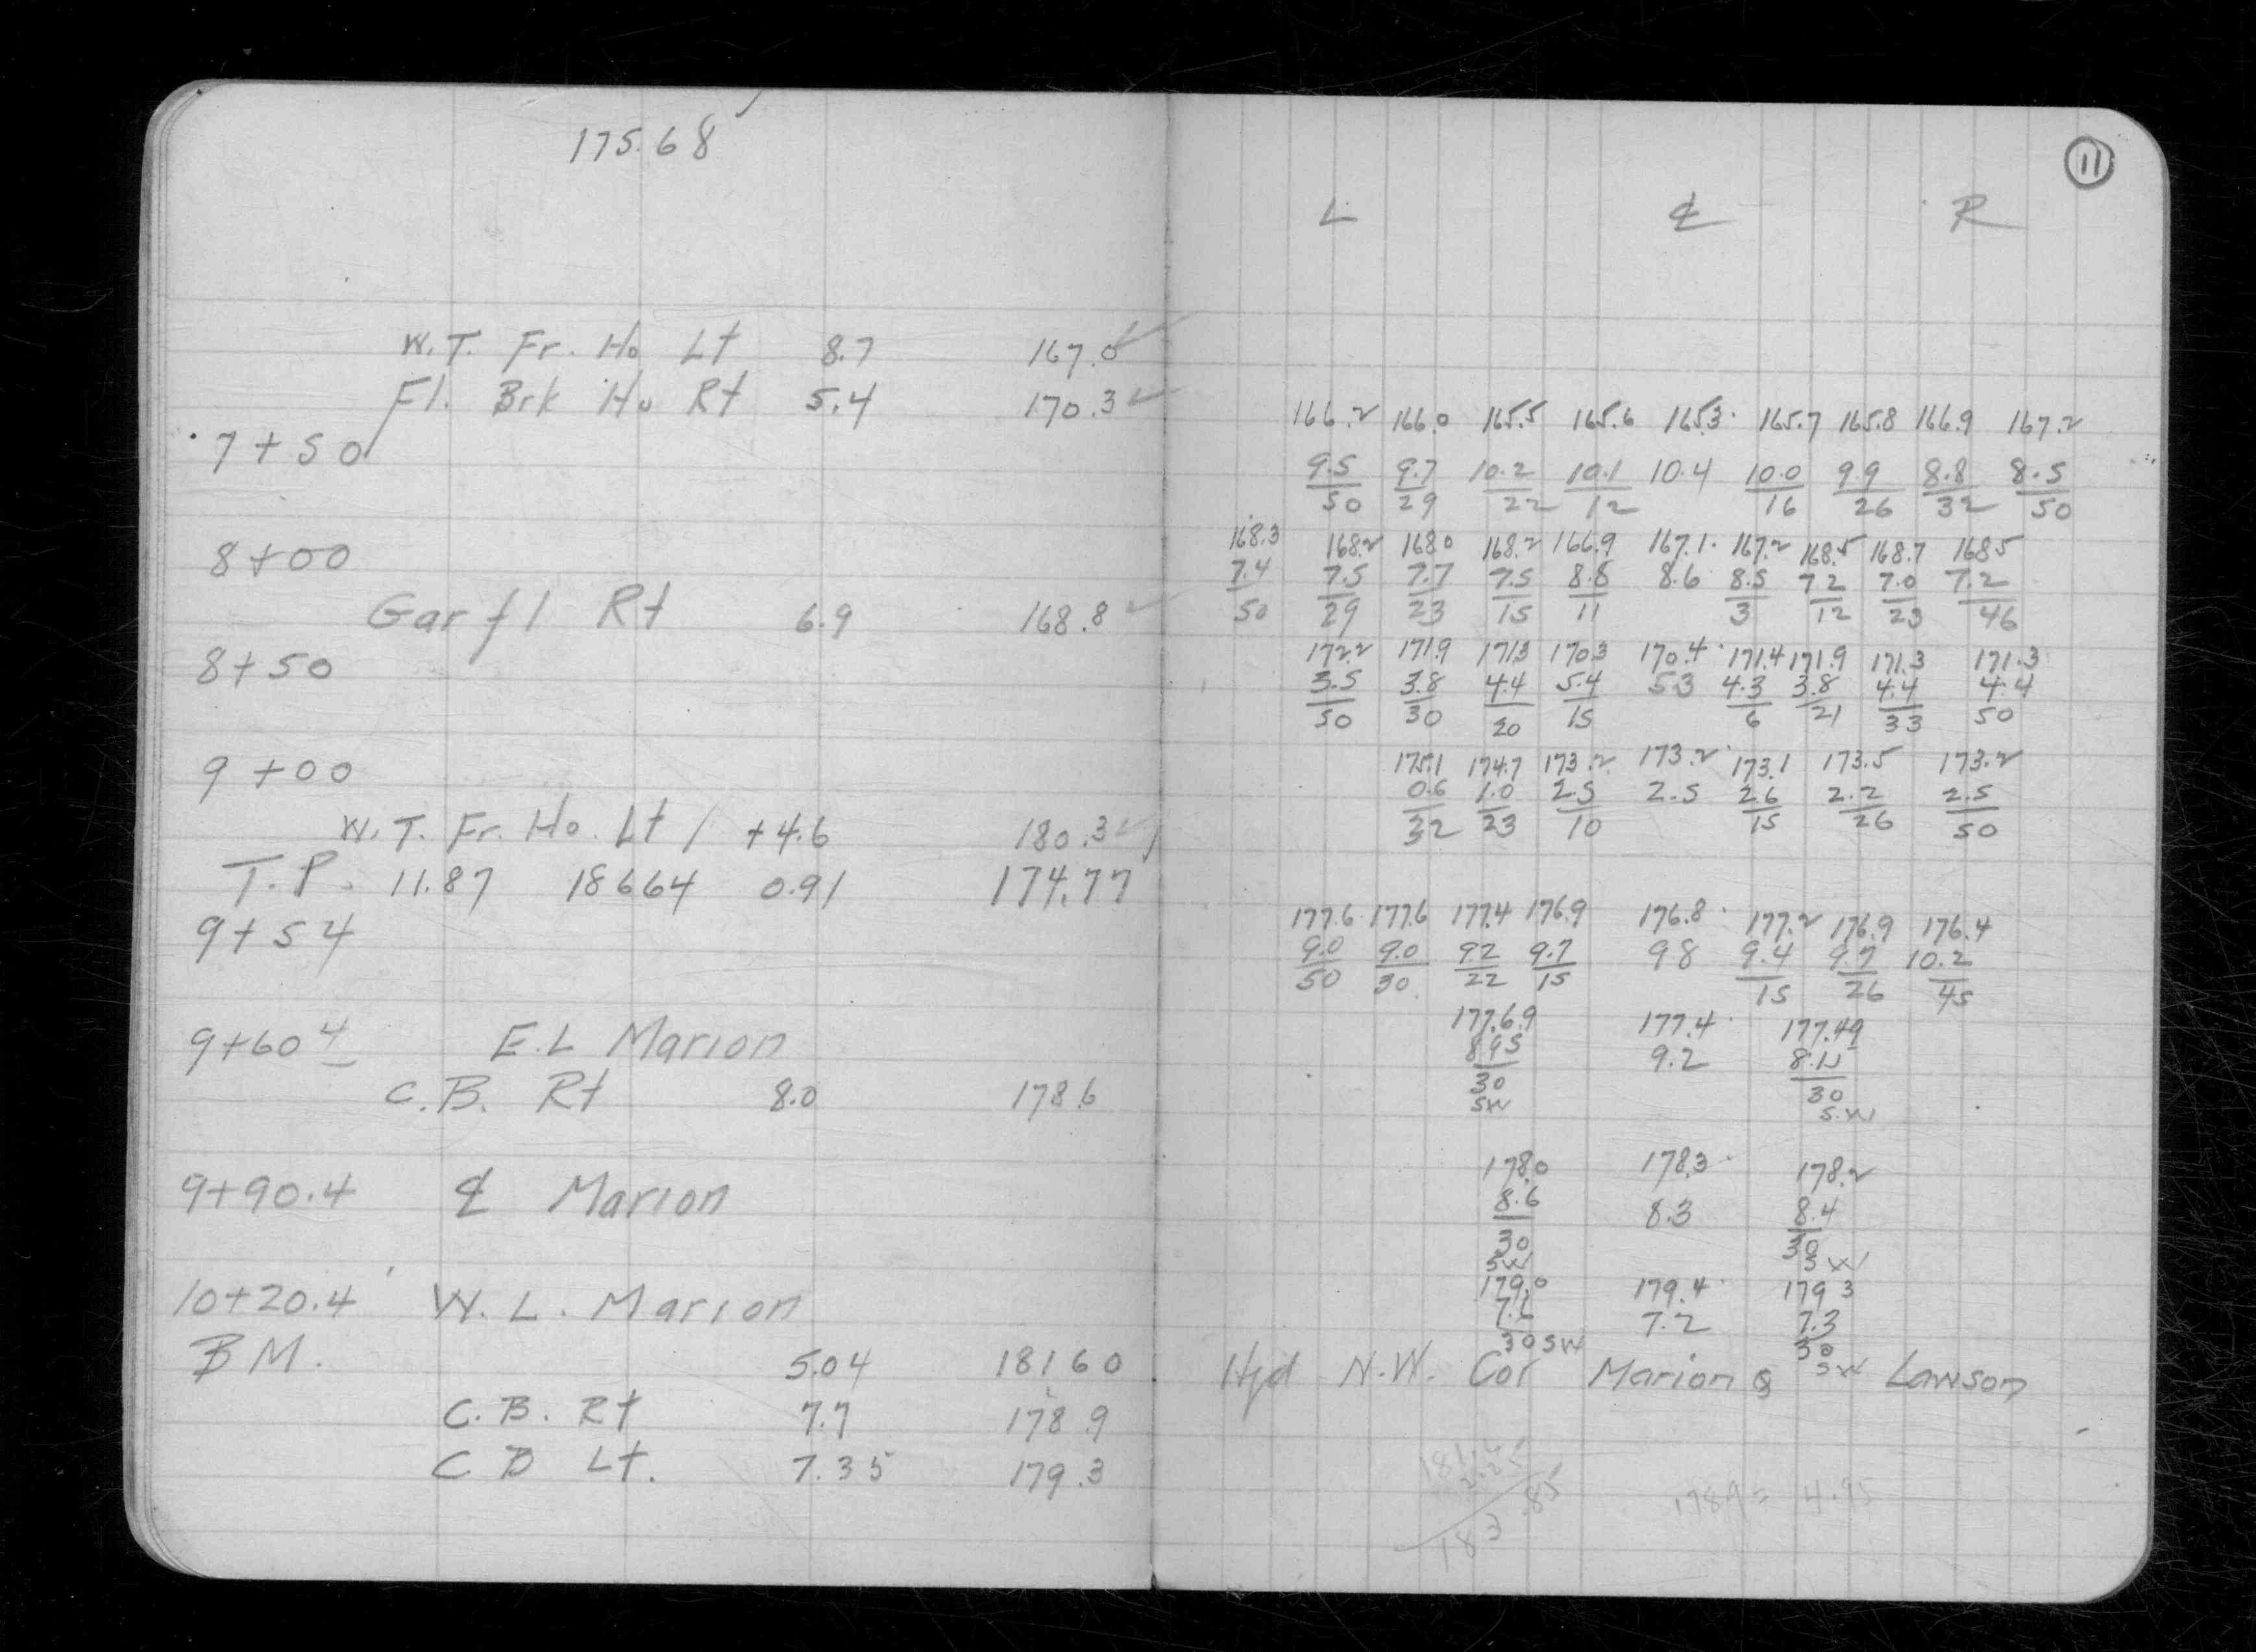 175.68
W.T. Fr. Ho Lt 8.7 167.0 ✓
Fl. Brk Ho Rt 5.4 170.3 ✓
7+50
8+00
Gar fl Rt 6.9 168.8 ✓
8+50
9+00
W.T. Fr. Ho. Lt / +4.6 180.3 ✓
T.P. 11.87 18664 0.91 174.77
9+54
9+60 4 E.L Marion
C.B. Rt 8.0 178.6
9+90.4 ℄ Marion
10+20.4 W.L. Marion
BM. 5.04 18160
C.B. Rt 7.7 178.9
C B Lt. 7.35 179.3
11
L ℄ R
166.2 166.0 165.5 165.6 165.3 165.7 165.8 166.9 167.2
9.5 9.7 10.2 10.1 10.4 10.0 9.9 8.8 8.5
50 29 22 12 16 26 32 50
168.3 168.2 168.0 168.2 166.9 167.1 167.2 168.5 168.7 168.5
7.4 7.5 7.7 7.5 8.8 8.6 8.5 7.2 7.0 7.2
50 29 23 15 11 3 12 23 46
172.2 171.9 171.3 170.3 170.4 171.4 171.9 171.3 171.3
3.5 3.8 4.4 5.4 5.3 4.3 3.8 4.4 4.4
50 30 20 15 6 21 33 50
175.1 174.7 173.2 173.2 173.1 173.5 173.2
0.6 1.0 2.5 2.5 2.6 2.2 2.5
32 23 10 15 26 50
177.6 177.6 177.4 176.9 176.8 177.2 176.9 176.4
9.0 9.0 9.2 9.7 9.8 9.4 9.7 10.2
50 30 22 15 15 26 45
177.69 177.4 177.49
8.95 9.2 8.15
30 30
SW S.W
178.0 178.3 178.2
8.6 8.3 8.4
30 30
SW SW
179.0 179.4 179.3
7.6 7.2 7.3
30 SW 30
SW
Hyd N.W. Cor Marion & Lawson
183 .85
1789 = 4.95